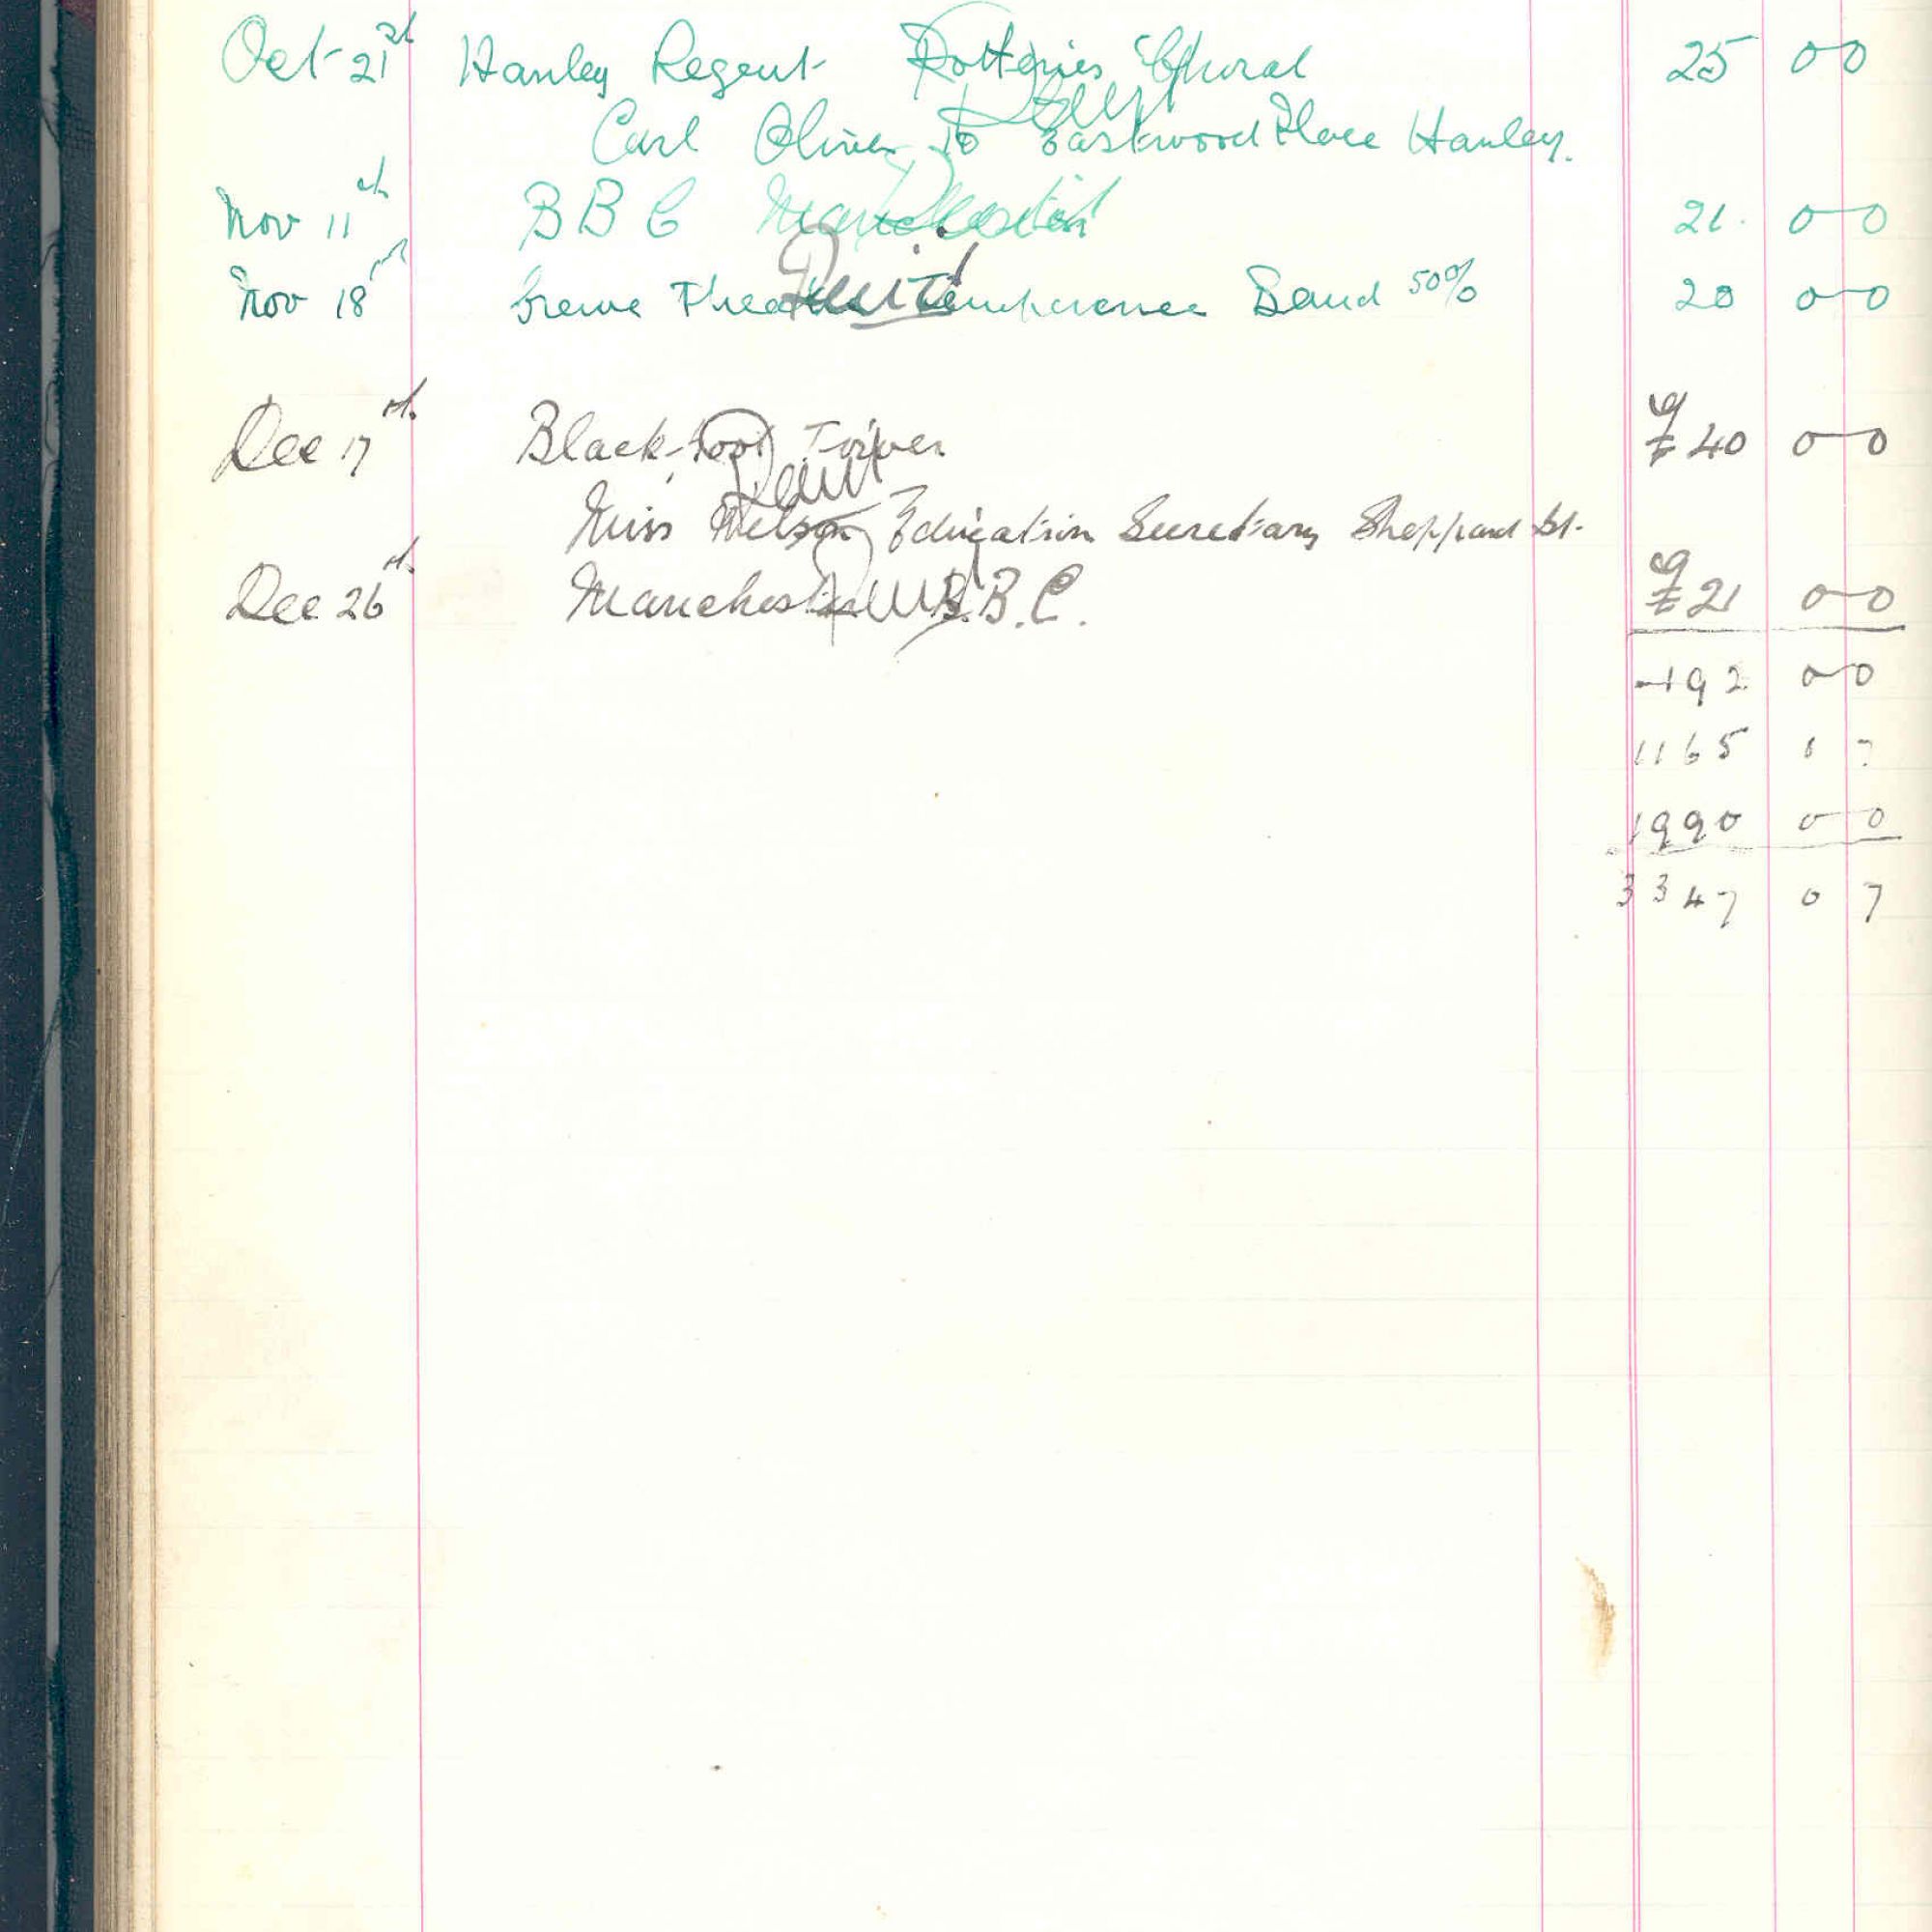 Oct 21st Hanley Regent Potteries Choral 25 0 0
Paid
Carl Oliver 10 Eastwood Place Hanley.
Nov 11th BBC Manchester 21. 0 0
Paid
Nov 18th Crewe Theatre Temperance Band 50% 20 0 0
Paid
Dec 17th Black-pool Tower £40 0 0
Paid
Miss Nelson Education Secretary Sheppard St.
Dec 26th Manchester B.B.C. £21 0 0
Paid
192 0 0
1165 0 7
1990 0 0
3347 0 7